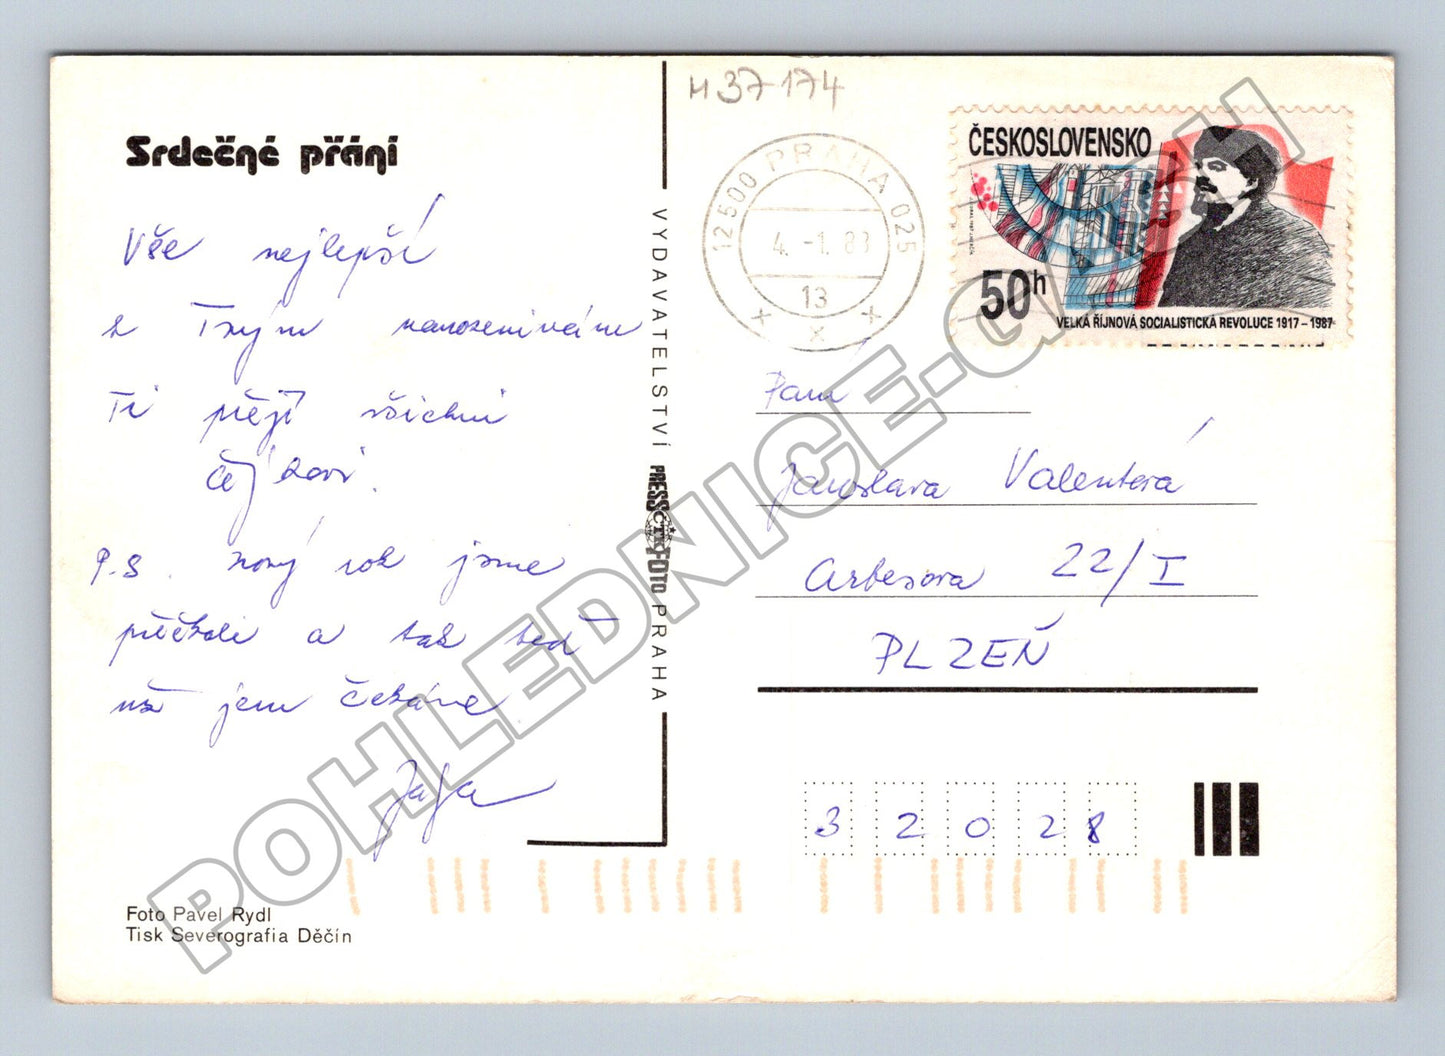 M 37 174
Srdečné přání
Vše nejlepší
k Tvým narozeninám
Ti přejí všichni
P.S. Nový rok jsme
přečkali a tak teď
už jen čekáme
Jája
Foto Pavel Rydl
Tisk Severografia Děčín
VYDAVATELSTVÍ PRESSFOTO PRAHA
ČTK
12500 PRAHA 025
4. -1. 88
13
x x x
ČESKOSLOVENSKO
50h
VELKÁ ŘÍJNOVÁ SOCIALISTICKÁ REVOLUCE 1917 – 1987
Paní
Jaroslava Valentová
Arbesova 22/I
PLZEŇ
3 2 0 2 8
POHLEDNICE-